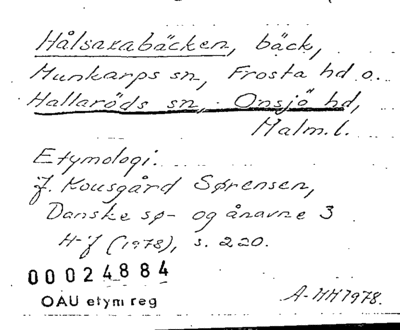 Hålsaxabäcken, bäck,
Munkarps sn, Frosta hd o.
Hallaröds sn, Onsjö hd,
Malm.l.
Etymologi:
J. Kousgård Sørensen,
Danske sø- og ånavne 3
H-J (1978), s. 220.
00024884
OAU etym reg
A-MH 1978.